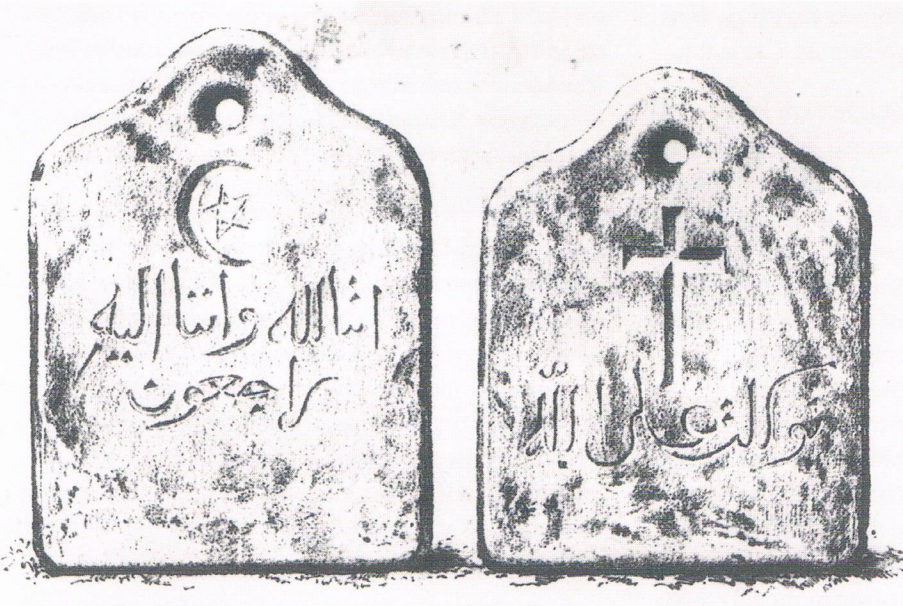 انا لله وانا اليه
راجعون
توكلت على الله